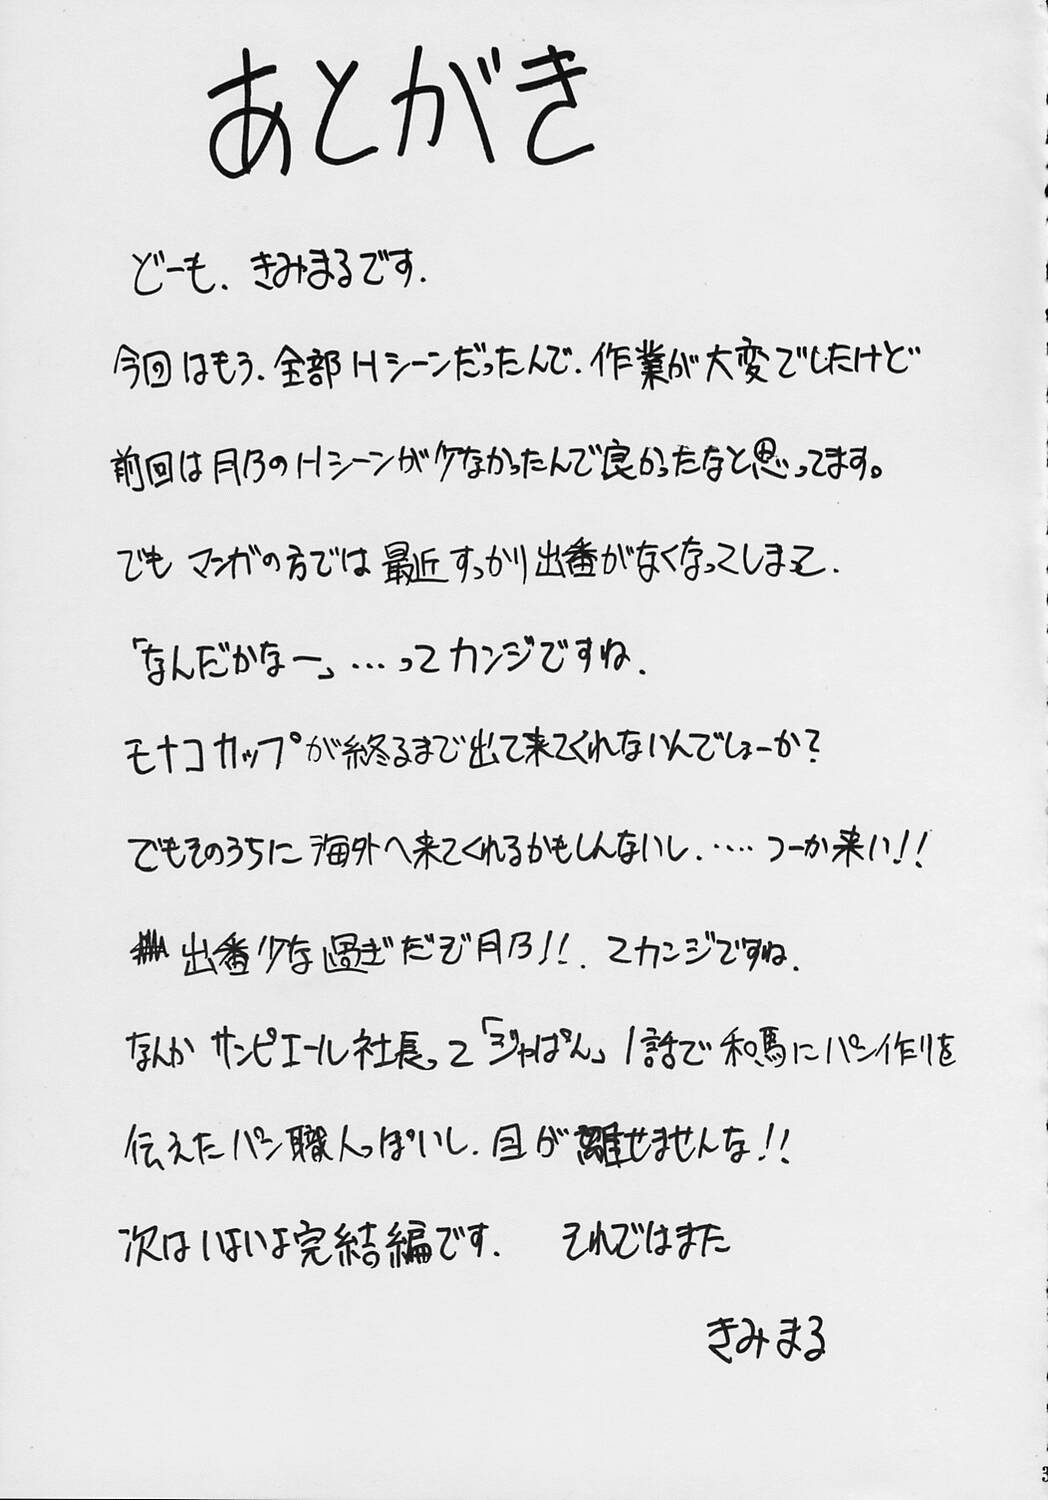 あとがき
どーも、きみまるです.
今回はもう、全部Hシーンだったんで、作業が大変でしたけど
前回は月乃のHシーンが少なかったんで良かったなと思ってます。
でもマンガの方では最近すっかり出番がなくなってしまって、
「なんだかなー」…ってカンジですね.
モナコカップが終るまで出て来てくれないんでしょーか?
でもそのうちに海外へ来てくれるかもしんないし、‥‥つーか来い!!
出番少な過ぎだぞ月乃!!、てカンジですね.
なんかサンピエール社長って「ジャぱん」1話で和馬にパン作りを
伝えたパン職人っぽいし、目が離せませんな!!
次はいよいよ完結編です. それではまた
きみまる
3